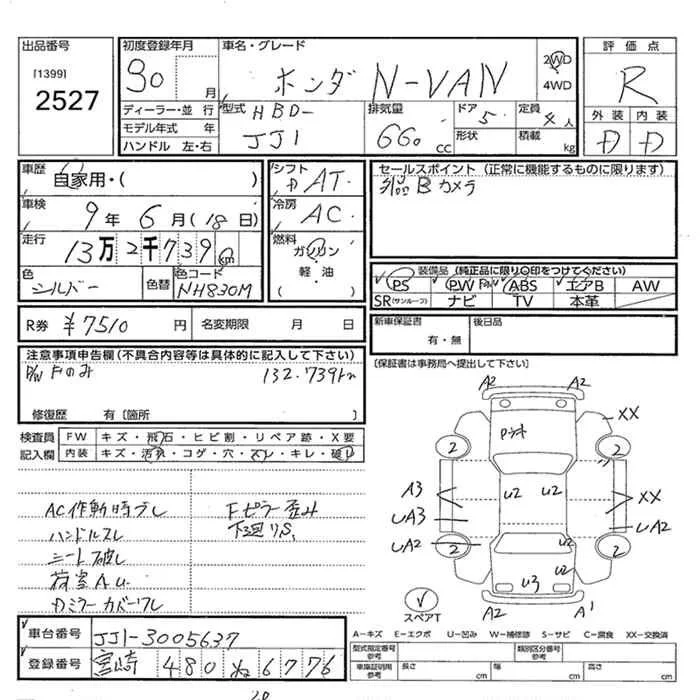 出品番号
[1399]
2527
初度登録年月
30 月
車名・グレード
ホンダ N-VAN
2WD
4WD
評価点
R
外装 内装
D D
ディーラー・並 行
モデル年式 年
ハンドル 左・右
型式 HBD-
JJ1
排気量
660 CC
ドア 5
形状
定員 4 人
積載 kg
車歴
自家用・( )
車検
9年 6月(18日)
走行
13万2千739km
色
シルバー
色替
色コード
NH830M
シフト
AT
冷房
AC
燃料
ガソリン
軽・油
( )
セールスポイント (正常に機能するものに限ります)
Bカメラ
装備品 (純正品に限り○印をつけてください)
PS PW ABS エアB AW
SR(サンルーフ) ナビ TV 本革
R券 ¥7510 円 名変期限 月 日
新車保証書
有・無
後日品
[保証書は事務局へ提出して下さい]
注意事項申告欄(不具合内容等は具体的に記入して下さい)
P/W Fのみ 132.739km
修復歴 有[箇所 ]
検査員
記入欄
FW キズ・飛石・ヒビ割・リペア跡・X要
内装 キズ・汚れ・コゲ・穴・スレ・キレ・破れ
AC作動時ブレ
ハンドルスレ
シート破レ
荷室AU.
Dミラーカバーワレ
Fピラー歪み
下廻りS.
A2 A2
XX
2 2
U2 U2
A3 XX
UA3 UA2
UA2 2 2
U2
U2
U3
スペアT
A2 A1
A-キズ E-エクボ U-凹み W-補修跡 S-サビ C-腐食 XX-交換済
車台番号 JJ1-3005637
登録番号 宮崎 480 ぬ 6776
型式指定番号
参考
類別区分番号
参考
車庫証明用
参考
長さ cm 幅 cm 高さ cm